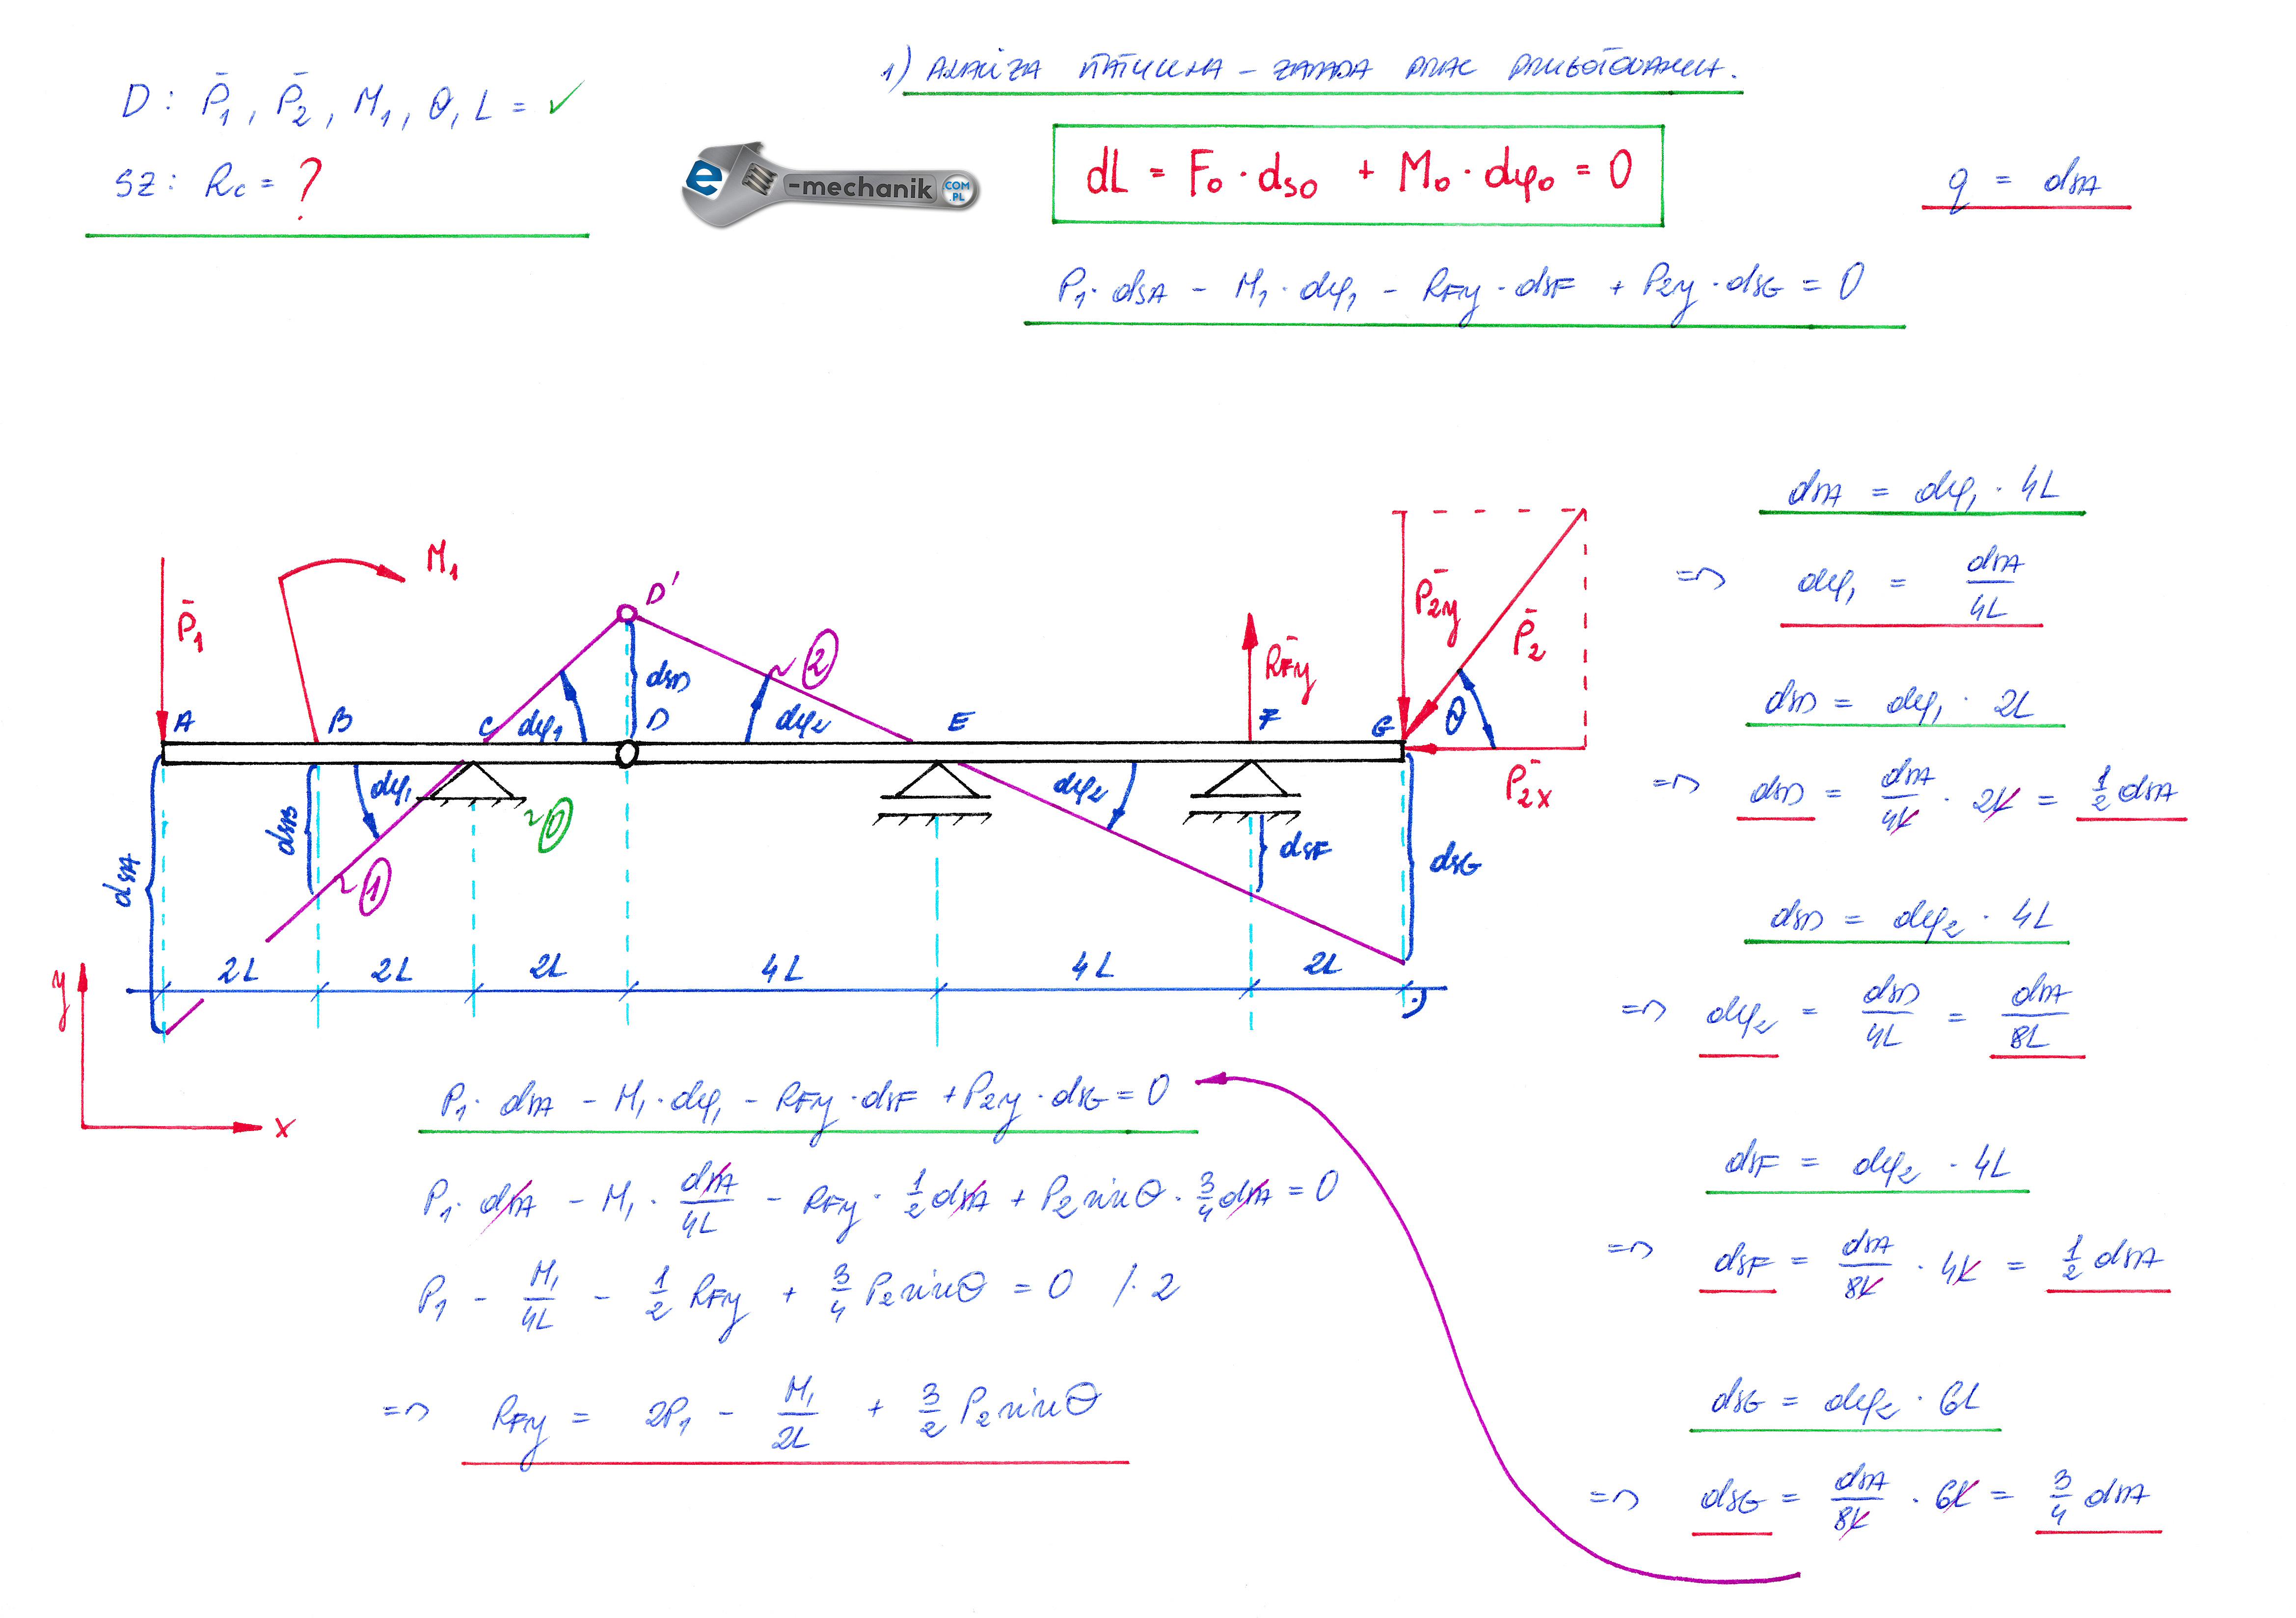 D: P̄₁, P̄₂, M₁, θ, L = ✓
SZ: Rc = ?
1) ANALIZA STATYCZNA - ZASADA PRAC PRZYGOTOWANYCH.
e-mechanik COM.PL
dL = F₀ · ds₀ + M₀ · dφ₀ = 0
q = dsA
P₁ · dsA - M₁ · dφ₁ - RFy · dsF + P2y · dsG = 0
M₁
P̄₁
D'
dsD
2
dφ₁
dφ₂
A
B
C
D
E
F
G
R̄Fy
P̄2y
P̄₂
θ
P̄2x
dsA
dsB
dφ₁
1
0
dφ₂
dsF
dsG
2L 2L 2L 4L 4L 2L
y
x
dsA = dφ₁ · 4L
=> dφ₁ = dsA/4L
dsD = dφ₁ · 2L
=> dsD = dsA/4L · 2L = 1/2 dsA
dsD = dφ₂ · 4L
=> dφ₂ = dsD/4L = dsA/8L
dsF = dφ₂ · 4L
=> dsF = dsA/8L · 4L = 1/2 dsA
dsG = dφ₂ · 6L
=> dsG = dsA/8L · 6L = 3/4 dsA
P₁ · dsA - M₁ · dφ₁ - RFy · dsF + P2y · dsG = 0
P₁ · dsA - M₁ · dsA/4L - RFy · 1/2 dsA + P₂ sinθ · 3/4 dsA = 0
P₁ - M₁/4L - 1/2 RFy + 3/4 P₂ sinθ = 0 /· 2
=> RFy = 2P₁ - M₁/2L + 3/2 P₂ sinθ